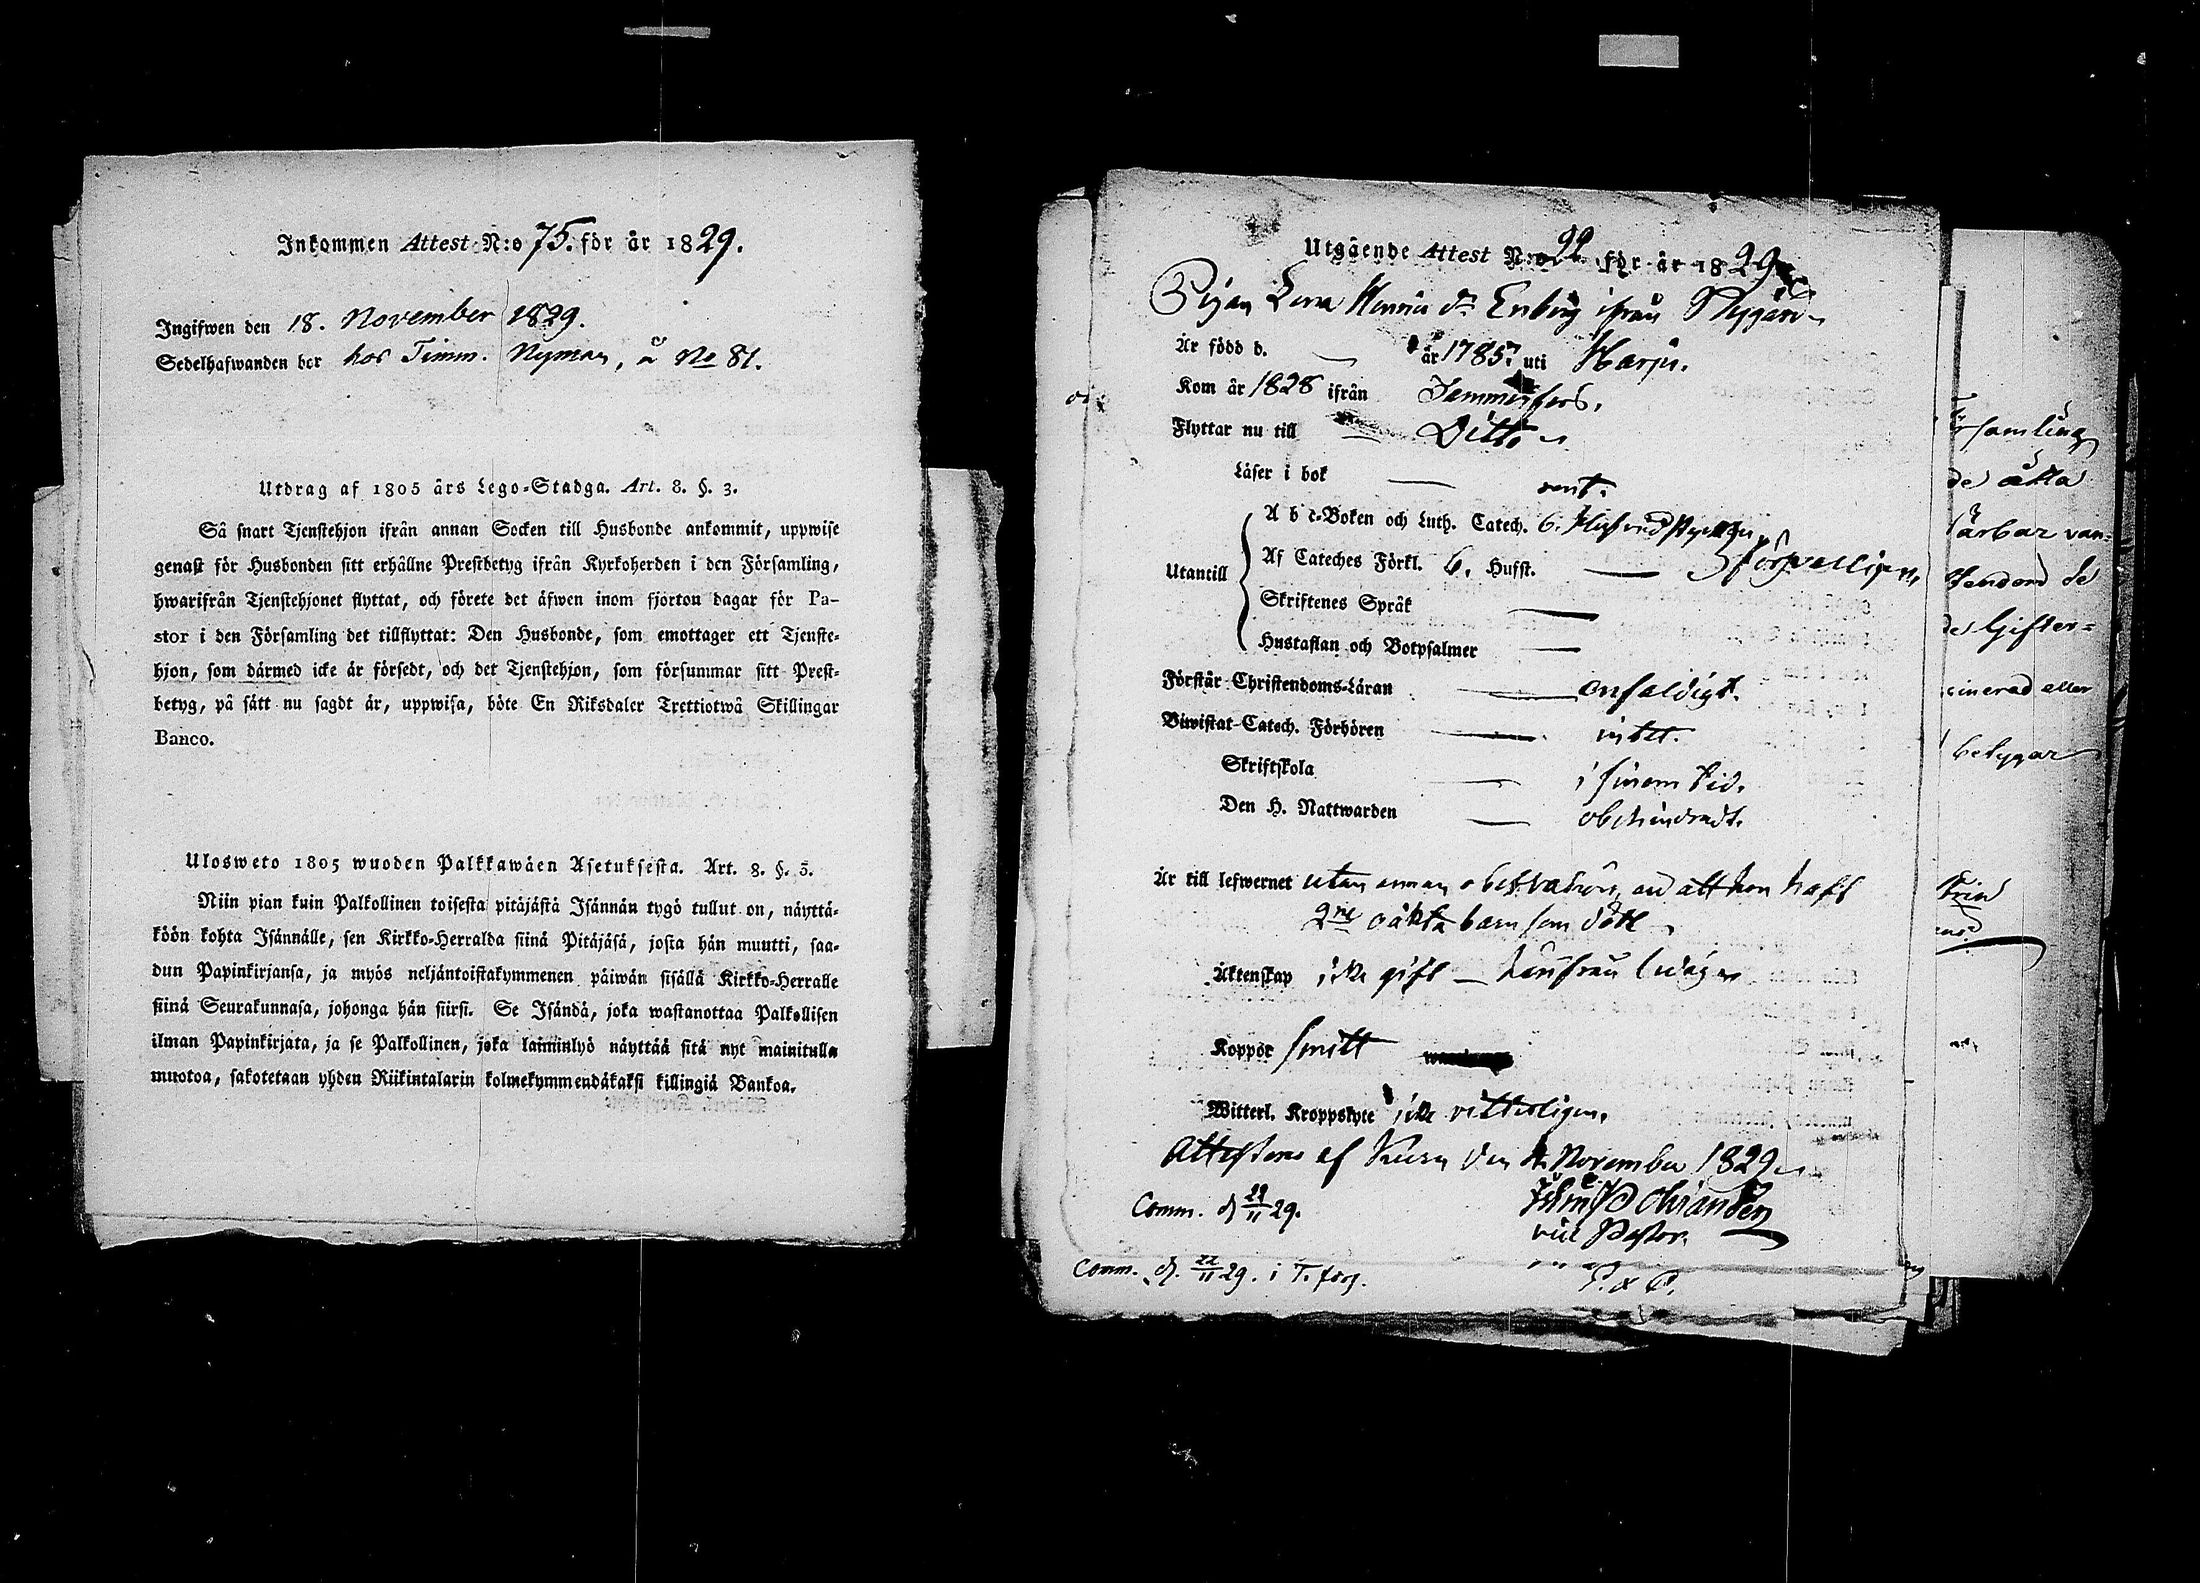 Inkommen Attest N:o 75. för år 1829.
Ingifwen den 18. November 1829.
Sedelhafwanden bor hos Timm. Nyman, å No 81.
Utdrag af 1805 års Lego-Stadga. Art. 8. §. 3.
Så snart Tjenstehjon ifrån annan Socken till Husbonde ankommit, uppwise
genast för Husbonden sitt erhållne Prestbetyg ifrån Kyrkoherden i den Församling,
hwarifrån Tjenstehjonet flyttat, och förete det äfwen inom fjorton dagar för Pa-
stor i den Församling det tillflyttat: Den Husbonde, som emottager ett Tjenste-
hjon, som därmed icke är försedt, och det Tjenstehjon, som försummar sitt Prest-
betyg, på sätt nu sagdt är, uppwisa, böte En Riksdaler Trettiotwå Skillingar
Banco.
Ulosweto 1805 wuoden Palkkawäen Asetuksesta. Art. 8. §. 3.
Niin pian kuin Palkollinen toisesta pitäjästä Isännän tygö tullut on, näyttä-
köön kohta Isännälle, sen Kirkko-Herralda siinä Pitäjäsä, josta hän muutti, saa-
dun Papinkirjansa, ja myös neljäntoistakymmenen päiwän sisällä Kirkko-Herralle
siinä Seurakunnasa, johonga hän siirsi. Se Isändä, joka wastanottaa Palkollisen
ilman Papinkirjata, ja se Palkollinen, joka laiminlyö näyttää sitä nyt mainitulla
muotoa, sakotetaan yhden Riikintalarin kolmekymmendäkaksi killingiä Bankoa.
Utgående Attest N:o 99 för år 1829
Pigan Lena ifrån
Är född d. — år 1785 uti Harju.
Kom år 1828 ifrån Tammerfors.
Flyttar nu till — Ditto
Läser i bok — rent.
A b c-Boken och Luth. Catech. 6. Hufvudstycken
Utantill Af Cateches Förkl. 6. Hufst. — försvarligen,
Skriftenes Språk —
Hustaflan och Botpsalmer —
Förstår Christendoms-Läran — enfaldigt.
Biwistat Catech. Förhören — intet.
Skriftskola — i sinom tid.
Den H. Nattwarden — obehindradt.
Är till lefwernet utan annan observation, än att hon haft
2ne oäkta barn som dödt
Äktenskap icke gift — härifrån ledig
Koppor smitt
Witterl. Kroppslyte icke vitterligen,
Attesteras af den November 1829
vice Pastor.
Comm. d 22/11 29.
Comm. d. 22/11 29. i T. fors.
P. & C.
församling
de åtta
ärbar van-
de Gifter-
cinerad eller
betygar